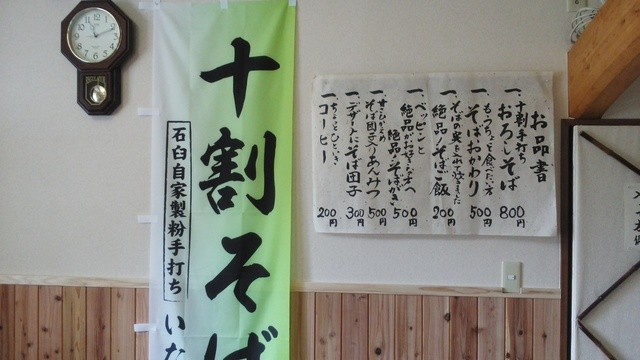 十割そば
石臼自家製粉手打ち
いな
お品書
一、十割手打ち
おろしそば
800円
一、もうちょっと食べたい方
そばおかわり
500円
一、そばの実を入れて炊きました
絶品!そばご飯
200円
一、ペッピンと
絶品がお好きな方へ
絶品!そばがき
500円
一、甘さひかえめ
そば団子入りあんみつ
500円
一、デザートにそば団子
300円
一、ちょっとひといき
コーヒー
200円